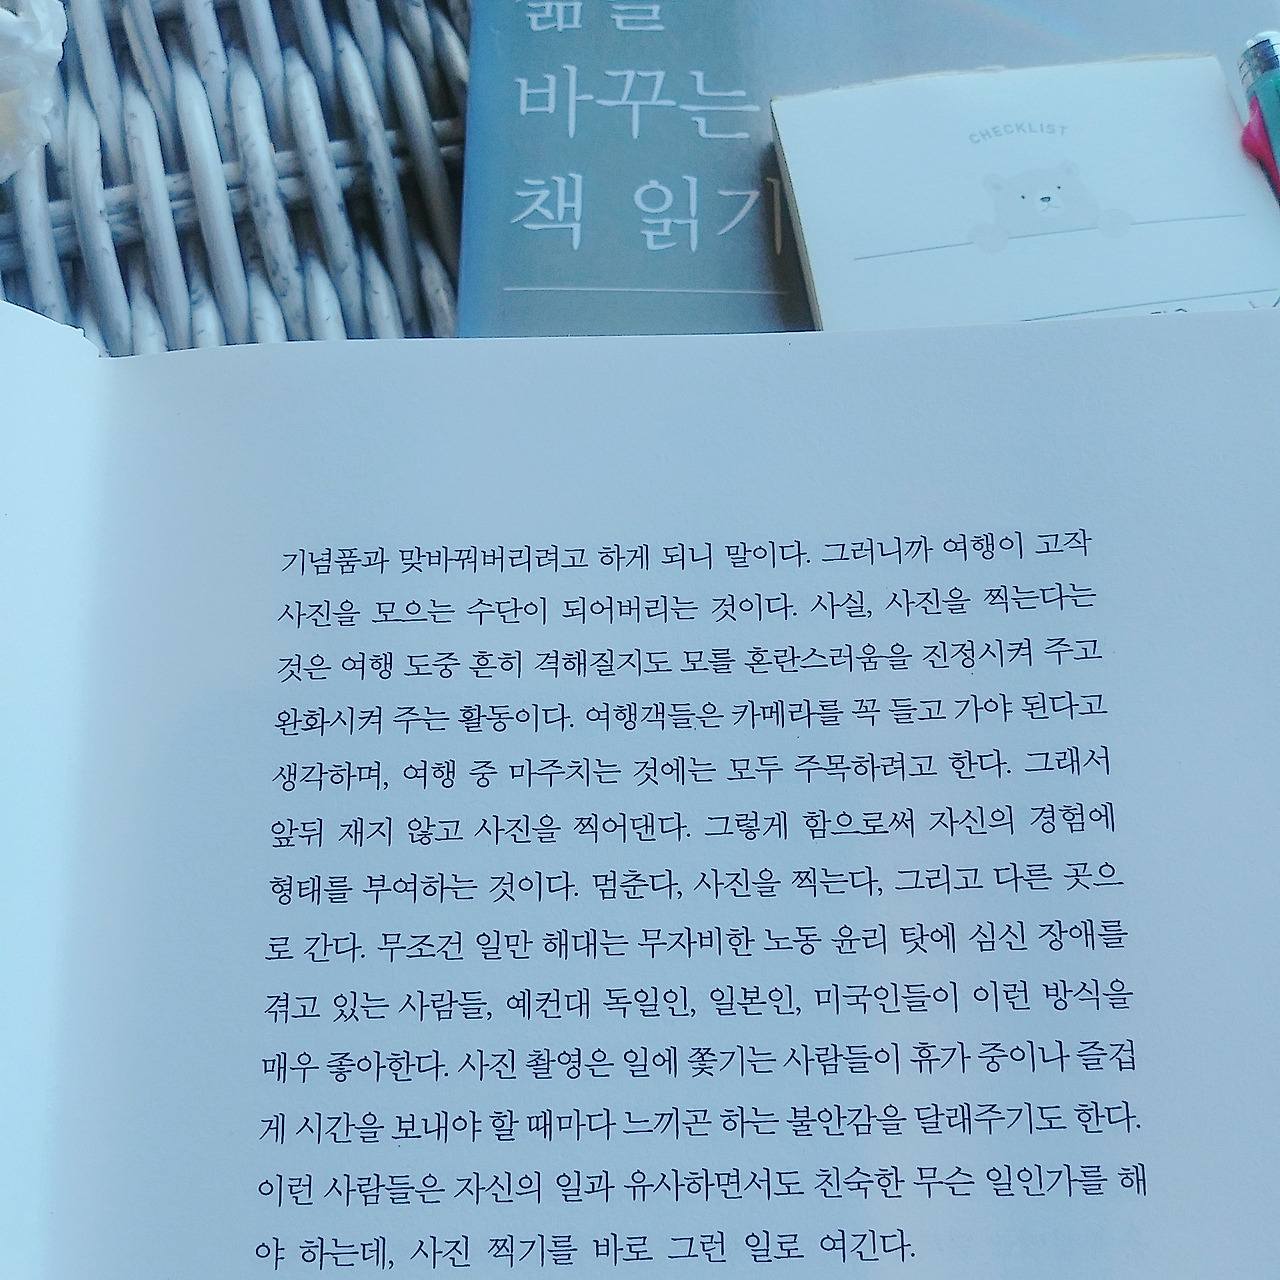 삶을
바꾸는
책 읽기
CHECKLIST
기념품과 맞바꿔버리려고 하게 되니 말이다. 그러니까 여행이 고작
사진을 모으는 수단이 되어버리는 것이다. 사실, 사진을 찍는다는
것은 여행 도중 흔히 격해질지도 모를 혼란스러움을 진정시켜 주고
완화시켜 주는 활동이다. 여행객들은 카메라를 꼭 들고 가야 된다고
생각하며, 여행 중 마주치는 것에는 모두 주목하려고 한다. 그래서
앞뒤 재지 않고 사진을 찍어댄다. 그렇게 함으로써 자신의 경험에
형태를 부여하는 것이다. 멈춘다, 사진을 찍는다, 그리고 다른 곳으
로 간다. 무조건 일만 해대는 무자비한 노동 윤리 탓에 심신 장애를
겪고 있는 사람들, 예컨대 독일인, 일본인, 미국인들이 이런 방식을
매우 좋아한다. 사진 촬영은 일에 쫓기는 사람들이 휴가 중이나 즐겁
게 시간을 보내야 할 때마다 느끼곤 하는 불안감을 달래주기도 한다.
이런 사람들은 자신의 일과 유사하면서도 친숙한 무슨 일인가를 해
야 하는데, 사진 찍기를 바로 그런 일로 여긴다.